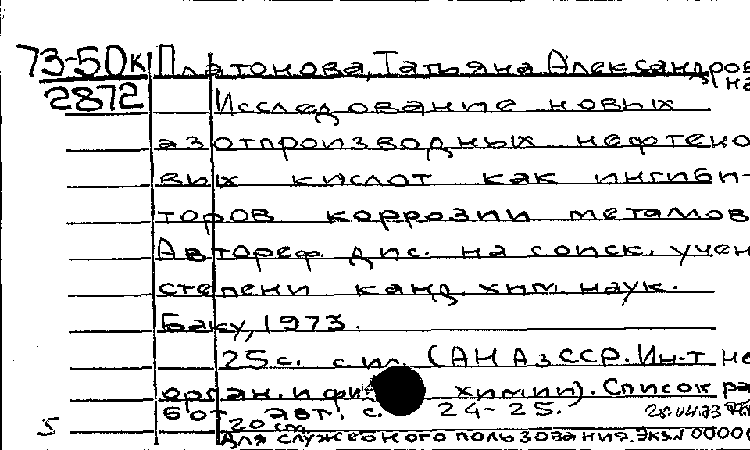 73-50к Платонова, Татьяна Александров
на
2872 Исследование новых
азотпроизводных нефтено
вых кислот как ингиби-
торов коррозии металов
Автореф. дис. на соиск. учен
степени канд. хим. наук.
Баку, 1973.
25 с. с ил. (АН АзССР. Ин-т не
орган. и физ химии). Список ра
бот авт. с. 24-25.
5 20 cm
Для служебного пользования. Экз.N 00000